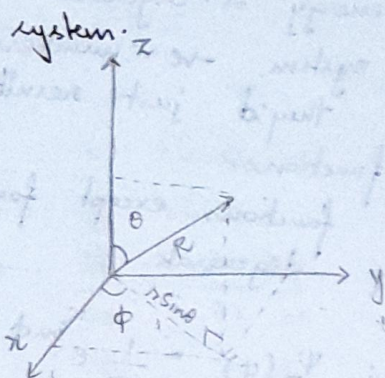 system.
z
θ
R
y
rsinθ
φ
x